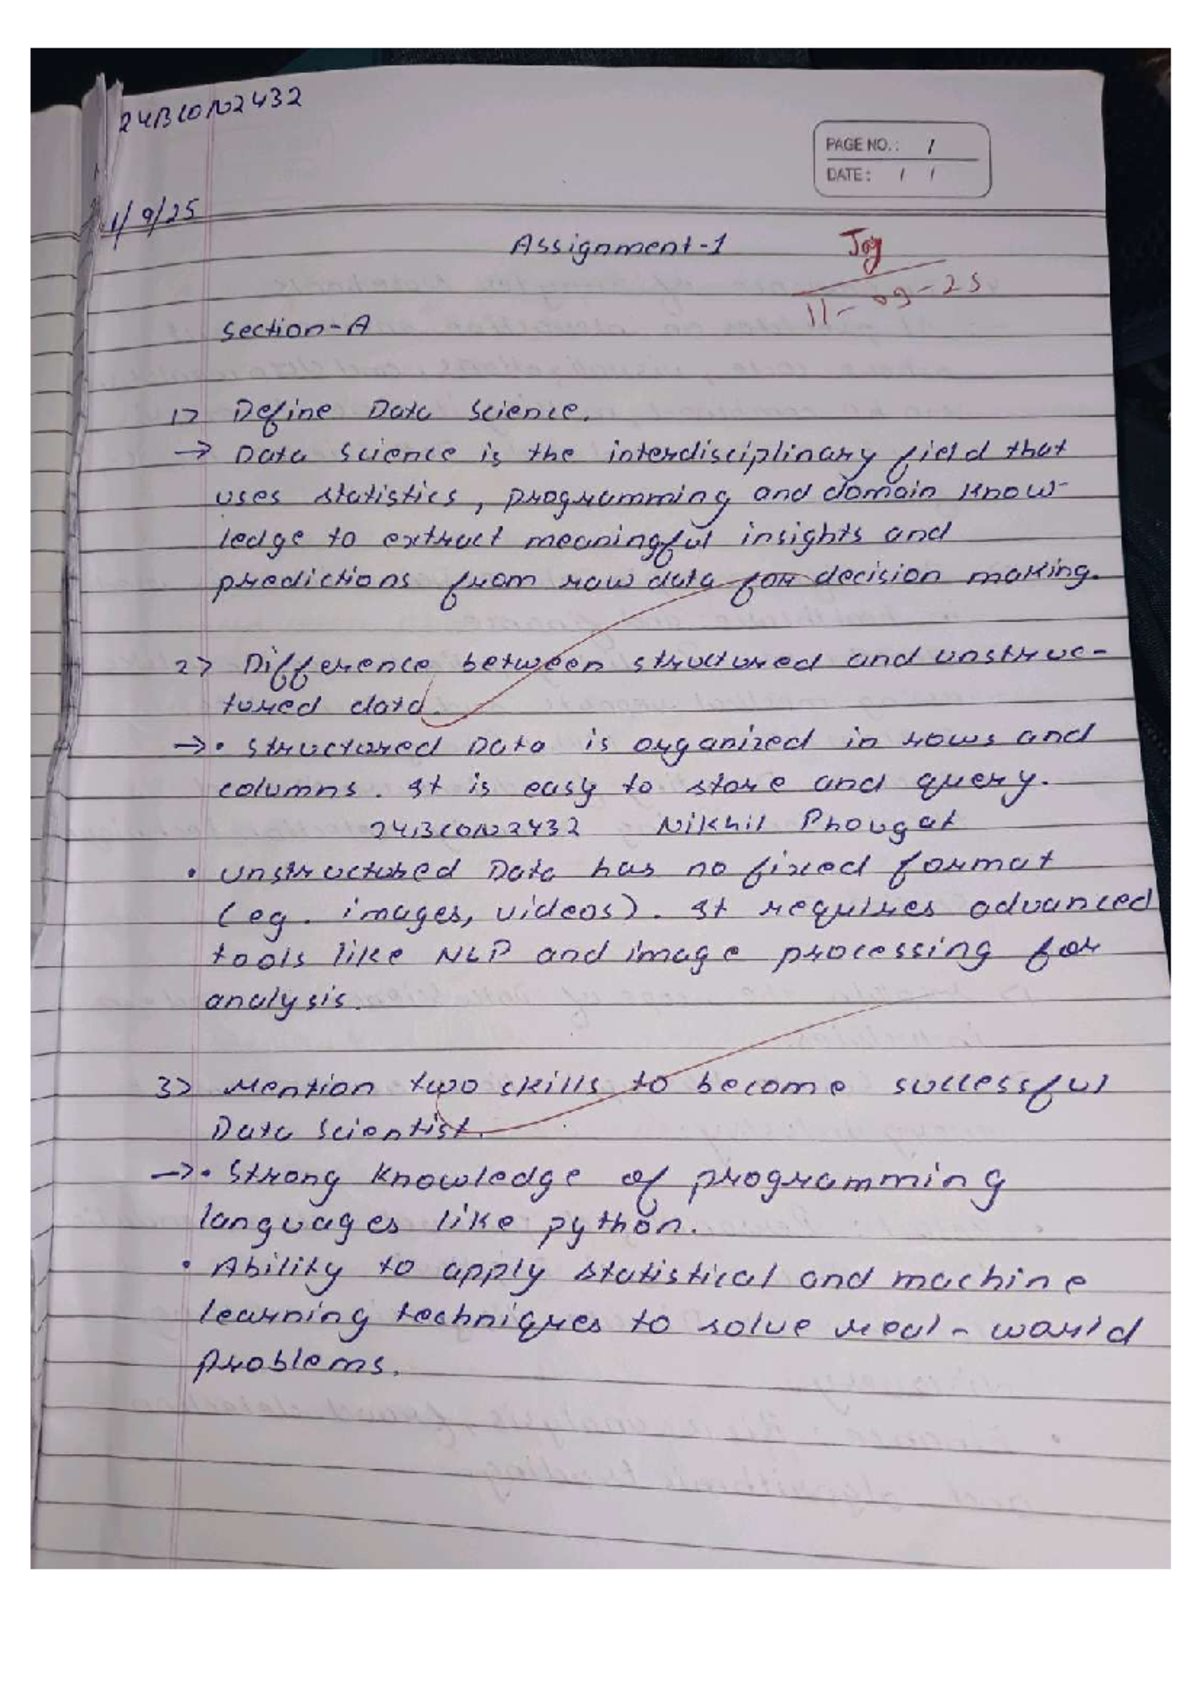 24BCON2432
PAGE NO.: 1
DATE: / /
1/9/25
Assignment-1
Joy
11-09-25
Section-A
1> Define Data Science.
→ Data Science is the interdisciplinary field that
uses statistics, programming and domain know-
ledge to extract meaningful insights and
predictions from raw data for decision making.
2> Difference between structured and unstruc-
tured data.
→ • Structured Data is organized in rows and
columns. It is easy to store and query.
24BCON2432 Nikhil Phougat
• Unstructured Data has no fixed format
(eg. images, videos). It requires advanced
tools like NLP and image processing for
analysis.
3> Mention two skills to become successful
Data Scientist.
→ • Strong knowledge of programming
languages like python.
• Ability to apply statistical and machine
learning techniques to solve real-world
problems.